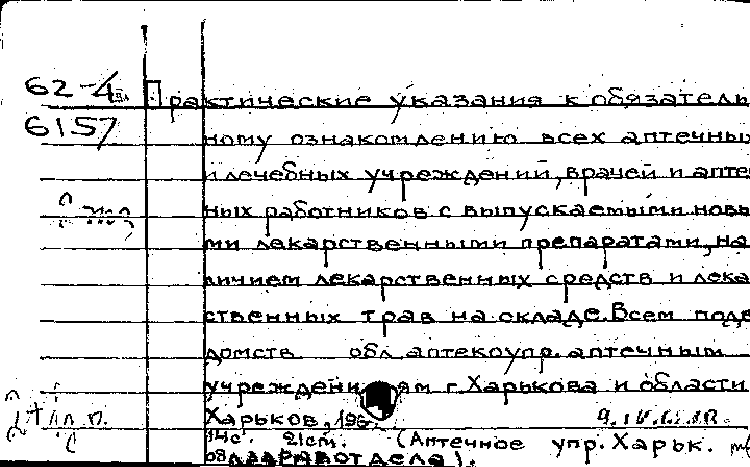 62-4
Практические указания к обязатель
6157
ному ознакомлению всех аптечны
и лечебных учреждений, врачей и апте
ных работников с выпускаемыми новы
ми лекарственными препаратами, на
личием лекарственных средств и лека
ственных трав на складе. Всем подв
домств. обл. аптекоупр. аптечным
учреждениям г. Харькова и области
Харьков, 196
14с. 21cm. (Аптечное упр. Харьк.
облздравотдела).